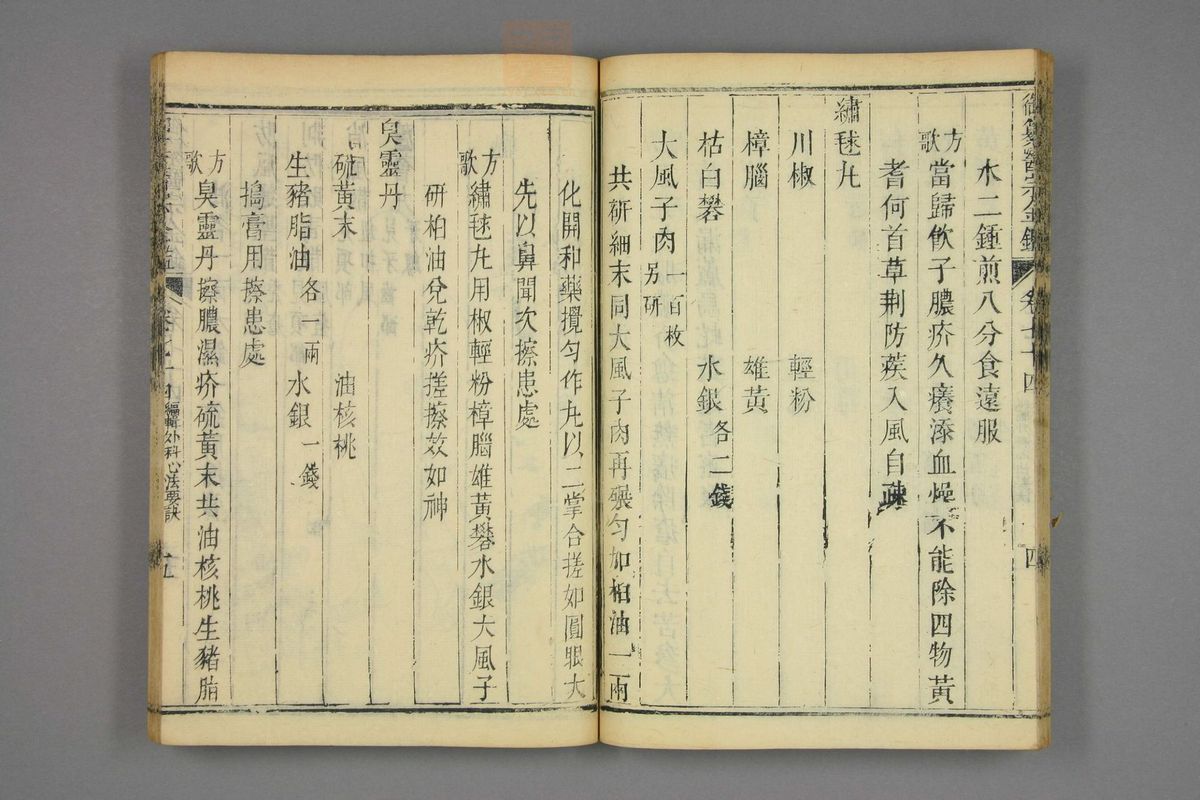 御纂醫宗金鑑 卷七十四 四
水二鍾煎八分食遠服
方歌 當歸飲子膿疥久癢添血燥不能除四物黃
耆何首草荆防蒺入風自疎
繡毬丸
川椒 輕粉
樟腦 雄黃
枯白礬 水銀各二錢
大風子肉一百枚另研
共研細末同大風子肉再碾勻加柏油一兩
化開和藥攪勻作丸以二掌合搓如圓眼大
先以鼻聞次擦患處
方歌 繡毬丸用椒輕粉樟腦雄黃礬水銀大風子
研柏油兌乾疥搓擦效如神
臭靈丹
硫黃末 油核桃
生豬脂油各一兩 水銀一錢
搗膏用擦患處
方歌 臭靈丹擦膿濕疥硫黃末共油核桃生豬脂
編輯外科心法要訣 五